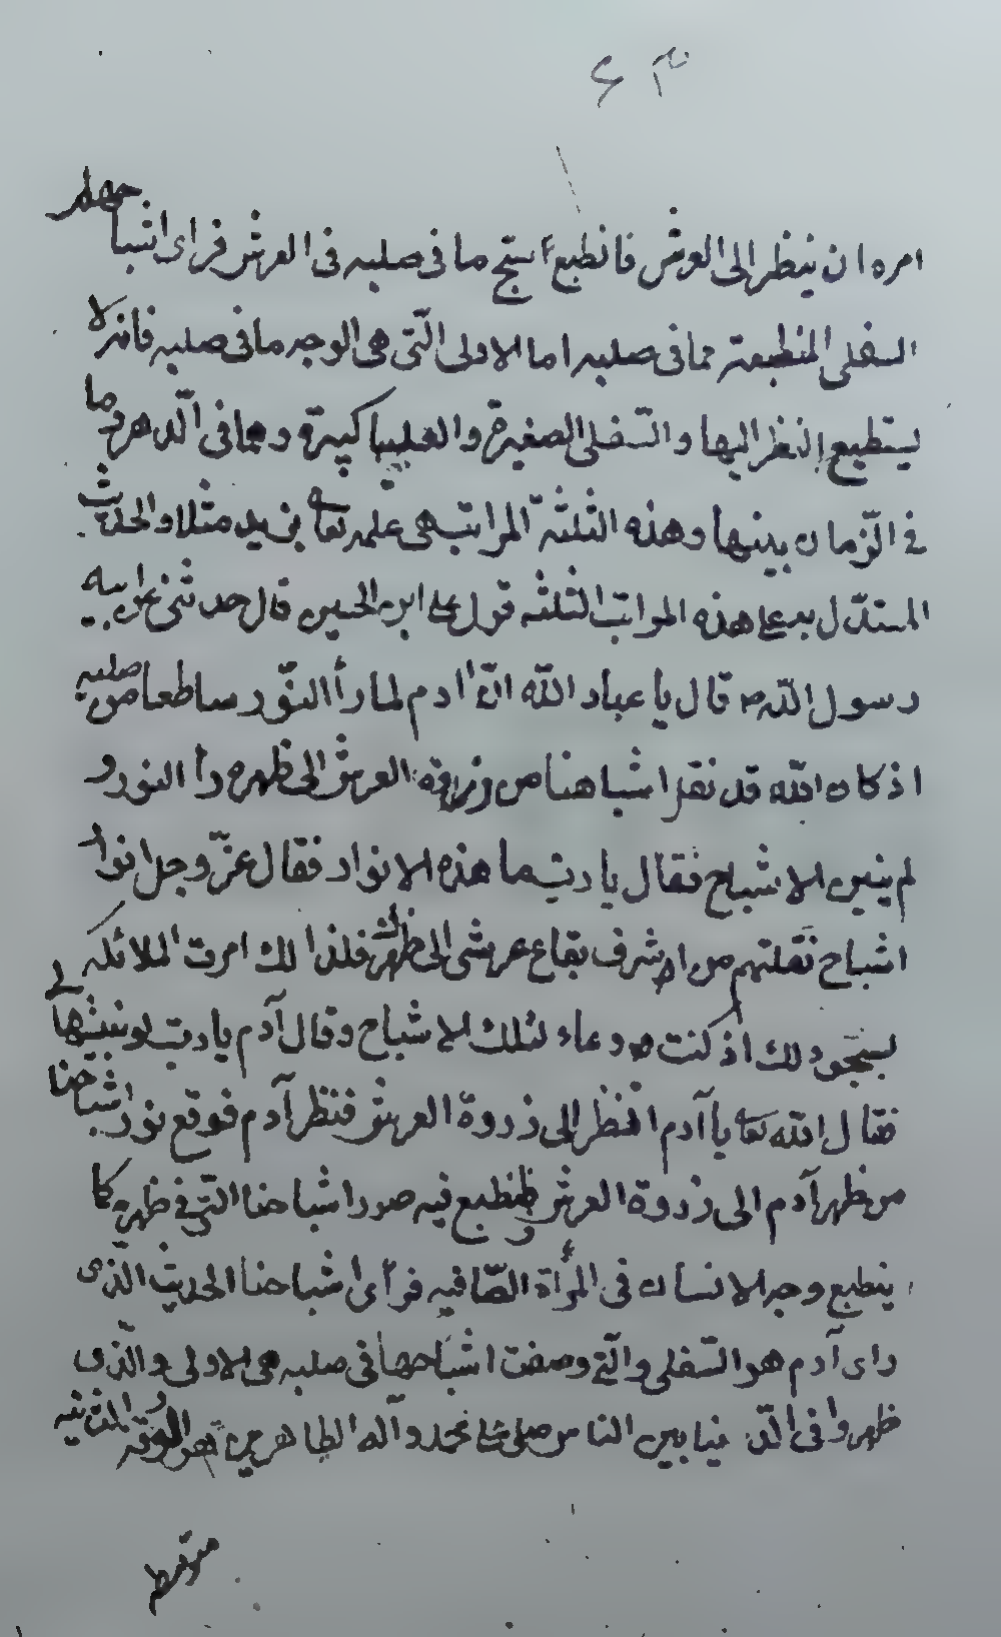 امره ان ينظر الى العرش فانطبع ما فى صلبه فى العرش فراى اشبا
السفلى المنطبعة مما فى صلبه اما الاولى الّتى هى الوجه ما فى صلبه فانه لا
يستطيع النظر اليها والسفلى الصغيرة والعليا كبيرة وهما فى الدهر وما
فى الزّمان بينهما وهذه الثلثة المراتب هى مثلا والحديث
المستدّل به على هذه المراتب الثلثه قول على ابن الحسين قال حدثنى عن ابيه
رسول الله ص قال يا عباد الله انّ ادم لما رأ النوّر ساطعا من صلبه
اذ كان الله قد نقل اشباهنا من ذروة العرش الى ظهره رأ النور و
لم يتبين الاشباح فقال يا ربّ ما هذه الانوار فقال عزّ وجل انوار
اشباح نقلتهم من اشرف بقاع عرشى الى ظهرك فلذالك امرت الملائكه
بسجود لك اذ كنت وعاء لتلك الاشباح وقال آدم يا رب لو بينتها لى
فقال الله تعا يا آدم انظر الى ذروة العرش فنظر آدم فوقع نور اشباحنا
من ظهر آدم الى ذروة العرش فانطبع فيه صور اشباحنا التّى فى ظهره كما
ينطبع وجه الانسان فى المرأة الصّافيه فرأى اشباحنا الحديث الذّى
راى آدم هو السّفلى والّتى وصفت اشباحها فى صلبه هى الاولى والذّى
ظهروا فى بين الناس صلى على محمد وآله الطاهرين